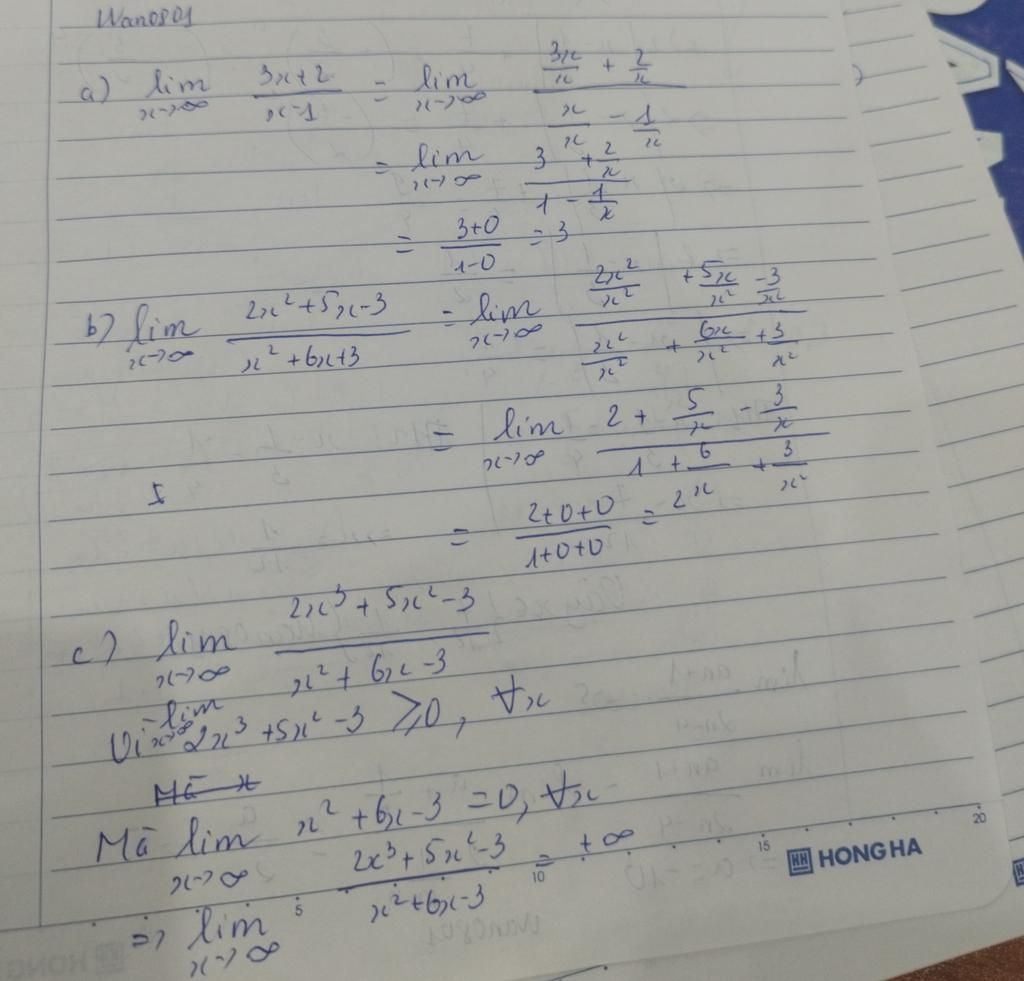 Wano801
a) lim x→∞ (3x+2)/(x-1) = lim x→∞ (3x/x + 2/x)/(x/x - 1/x)
= lim x→∞ (3 + 2/x)/(1 - 1/x)
= (3+0)/(1-0) = 3
b) lim x→∞ (2x²+5x-3)/(x²+6x+3) = lim x→∞ (2x²/x² + 5x/x² - 3/x²)/(x²/x² + 6x/x² + 3/x²)
= lim x→∞ (2 + 5/x - 3/x)/(1 + 6/x + 3/x²)
= (2+0+0)/(1+0+0) = 2
c) lim x→∞ (2x³ + 5x² - 3)/(x² + 6x - 3)
Vì lim x→∞ 2x³ + 5x² - 3 ⩾ 0, ∀x
Mà x
Mà lim x→∞ x² + 6x - 3 = 0, ∀x
=> lim x→∞ (2x³ + 5x² - 3)/(x² + 6x - 3) = +∞
5 10 15 20
HH HONG HA